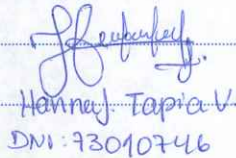 Hanna J. Tapia V.
DNI: 73010746